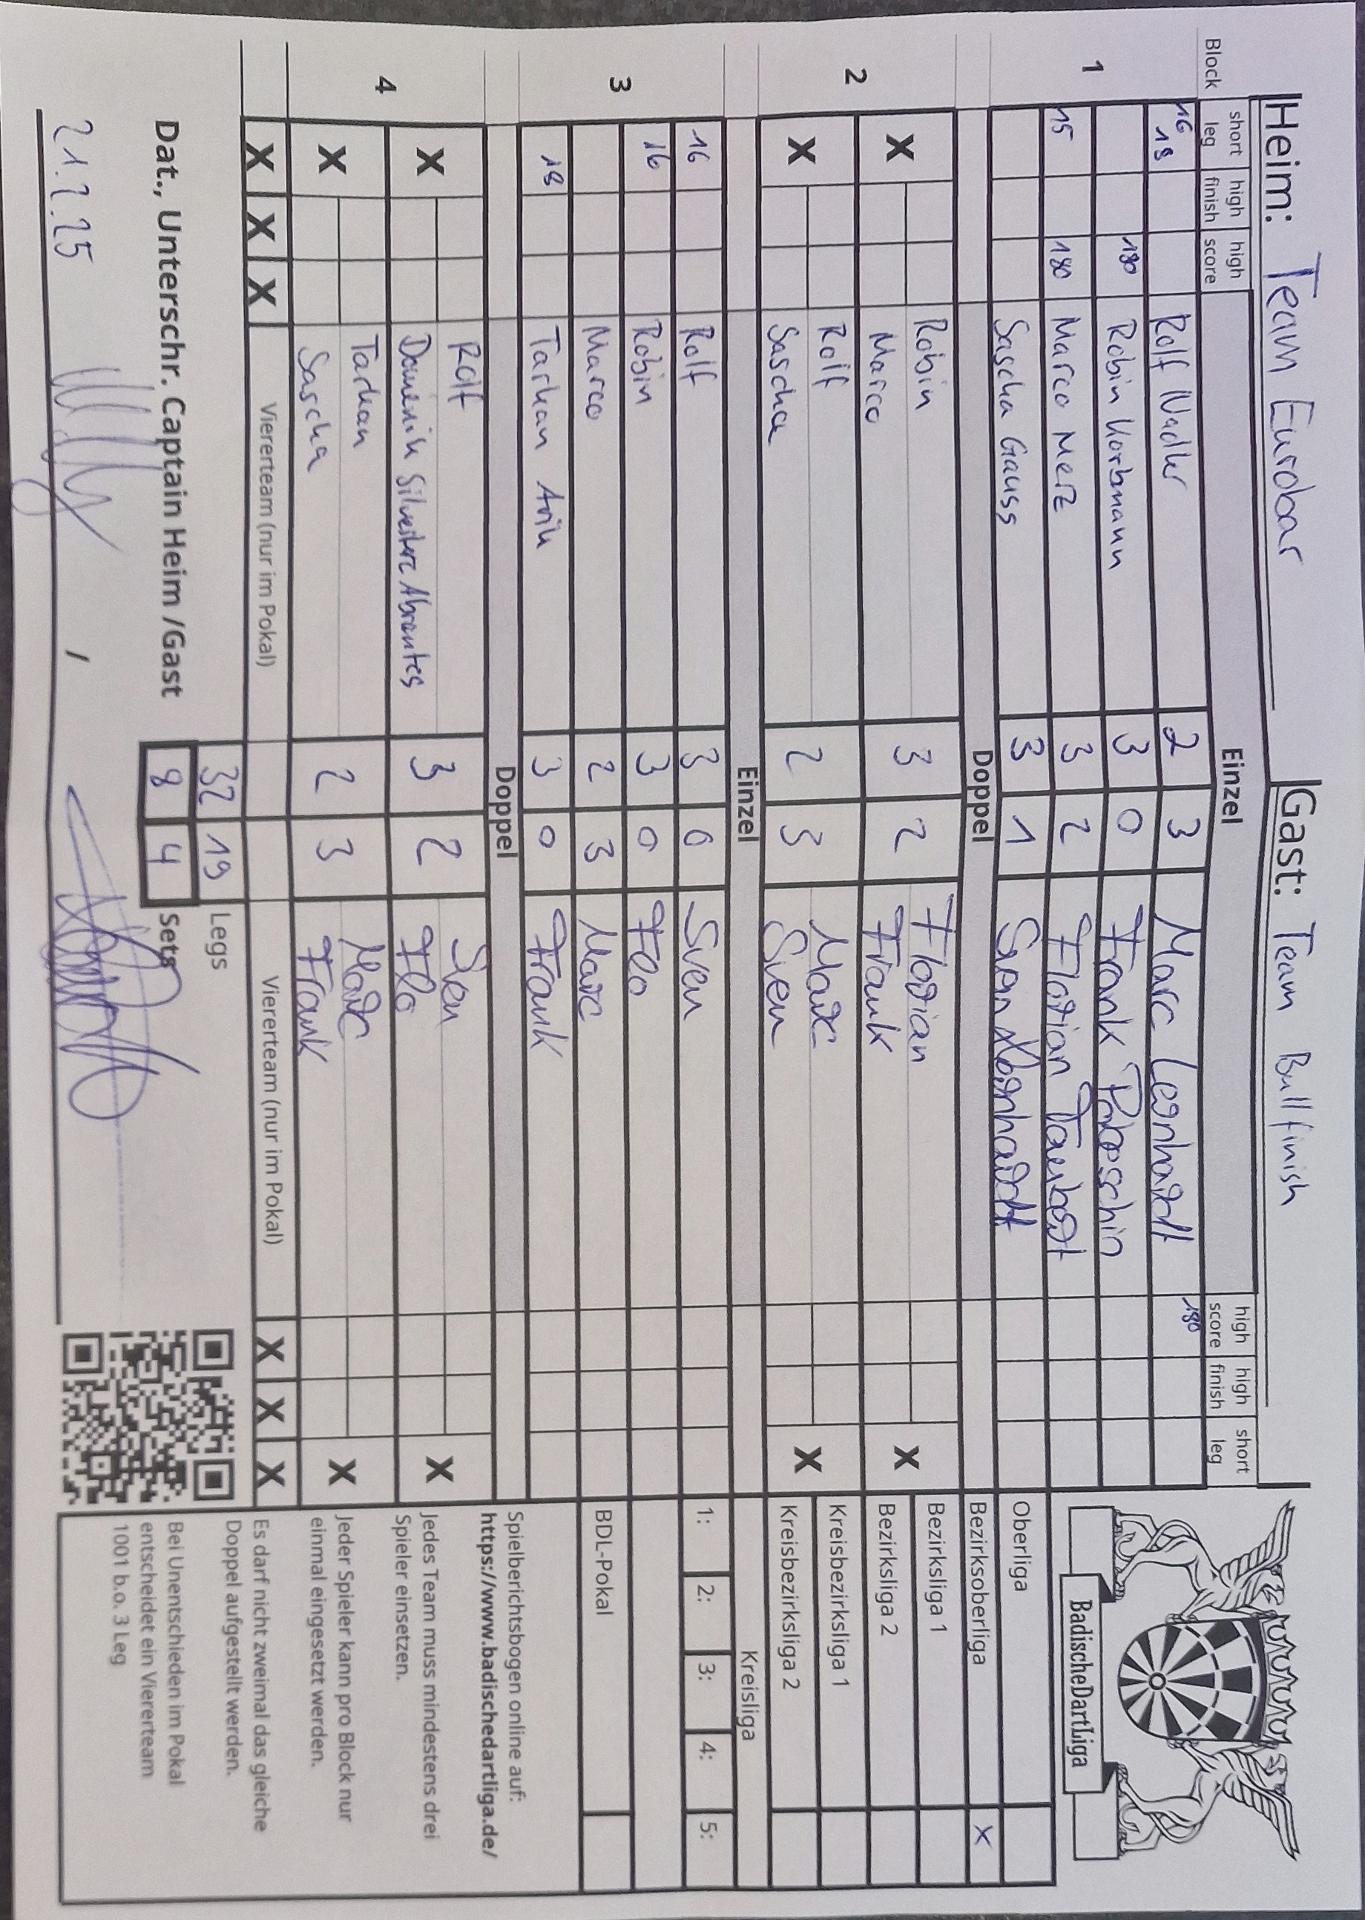 Heim: Team Eurobar Gast: Team Bullfinish
Block short leg high finish high score Einzel high score high finish short leg
1
16 18 Rolf Nadler 2 3 Marc Leonhardt 180
180 Robin Korbmann 3 0 Frank
15 180 Marco Merz 3 2 Florian
Sascha Gauss 3 1 Sven Leonhardt
Doppel
2
X Robin 3 2 Florian X
Marco Frank
X Rolf 2 3 Marc X
Sascha Sven
Einzel
3
16 Rolf 3 0 Sven
16 Robin 3 0 Flo
Marco 2 3 Marc
18 Tarkan Arik 3 0 Frank
Doppel
4
X Rolf 3 2 Sven X
Dominik Silvestre Abrantes Flo
X Tarkan 2 3 Marc X
Sascha Frank
X X X Viererteam (nur im Pokal) Viererteam (nur im Pokal) X X X
32 19 Legs
Dat., Unterschr. Captain Heim /Gast 8 4 Sets
21.2.25 ,
BadischeDartLiga
Oberliga
Bezirksoberliga X
Bezirksliga 1
Bezirksliga 2
Kreisbezirksliga 1
Kreisbezirksliga 2
Kreisliga
1: 2: 3: 4: 5:
BDL-Pokal
Spielberichtsbogen online auf:
https://www.badischedartliga.de/
Jedes Team muss mindestens drei
Spieler einsetzen.
Jeder Spieler kann pro Block nur
einmal eingesetzt werden.
Es darf nicht zweimal das gleiche
Doppel aufgestellt werden.
Bei Unentschieden im Pokal
entscheidet ein Viererteam
1001 b.o. 3 Leg